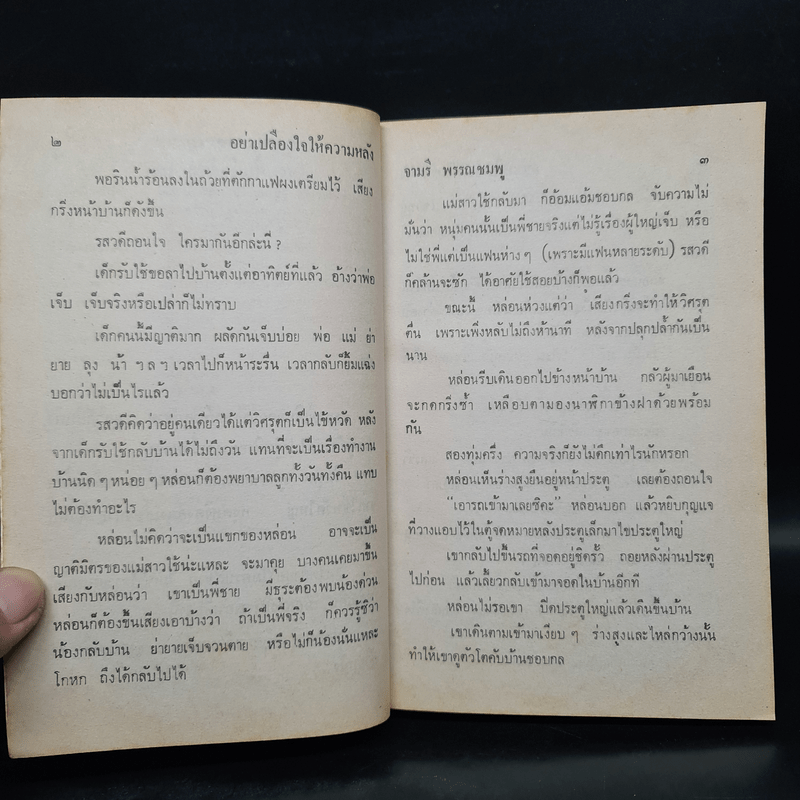 ๒ อย่าเปลืองใจให้ความหลัง
พอรินน้ำร้อนลงในถ้วยที่ตักกาแฟผงเตรียมไว้ เสียง
กริ่งหน้าบ้านก็ดังขึ้น
รสวดีถอนใจ ใครมากันอีกล่ะนี่ ?
เด็กรับใช้ขอลาไปบ้านตั้งแต่อาทิตย์ที่แล้ว อ้างว่าพ่อ
เจ็บ เจ็บจริงหรือเปล่าก็ไม่ทราบ
เด็กคนนี้มีญาติมาก ผลัดกันเจ็บบ่อย พ่อ แม่ ย่า
ยาย ลุง น้า ฯ ล ฯ เวลาไปก็หน้าระรื่น เวลากลับก็ยิ้มแฉ่ง
บอกว่าไม่เป็นไรแล้ว
รสวดีคิดว่าอยู่คนเดียวได้แต่วิศรุตก็เป็นไข้หวัด หลัง
จากเด็กรับใช้กลับบ้านได้ไม่ถึงวัน แทนที่จะเป็นเรื่องทำงาน
บ้านนิด ๆ หน่อย ๆ หล่อนก็ต้องพยาบาลลูกทั้งวันทั้งคืน แทบ
ไม่ต้องทำอะไร
หล่อนไม่คิดว่าจะเป็นแขกของหล่อน อาจจะเป็น
ญาติมิตรของแม่สาวใช้น่ะแหละ จะมาคุย บางคนเคยมาขึ้น
เสียงกับหล่อนว่า เขาเป็นพี่ชาย มีธุระต้องพบน้องด่วน
หล่อนก็ต้องขึ้นเสียงเอาบ้างว่า ถ้าเป็นพี่จริง ก็ควรรู้ซีว่า
น้องกลับบ้าน ย่ายายเจ็บจวนตาย หรือไม่ก็น้องนั่นแหละ
โกหก ถึงได้กลับไปได้
จามรี พรรณชมพู ๓
แม่สาวใช้กลับมา ก็อ้อมแอ้มชอบกล จับความไม่
มั่นว่า หนุ่มคนนั้นเป็นพี่ชายจริงแต่ไม่รู้เรื่องผู้ใหญ่เจ็บ หรือ
ไม่ใช่พี่แต่เป็นแฟนห่าง ๆ (เพราะมีแฟนหลายระดับ) รสวดี
ก็คล้านจะซัก ได้อาศัยใช้สอยบ้างก็พอแล้ว
ขณะนี้ หล่อนห่วงแต่ว่า เสียงกริ่งจะทำให้วิศรุต
ตื่น เพราะเพิ่งหลับไม่ถึงห้านาที หลังจากปลุกปล้ำกันเป็น
นาน
หล่อนรีบเดินออกไปข้างหน้าบ้าน กลัวผู้มาเยือน
จะกดกริ่งซ้ำ เหลือบตามองนาฬิกาข้างฝาด้วยพร้อม
กัน
สองทุ่มครึ่ง ความจริงก็ยังไม่ดึกเท่าไรนักหรอก
หล่อนเห็นร่างสูงยืนอยู่หน้าประตู เลยต้องถอนใจ
"เอารถเข้ามาเลยซิคะ" หล่อนบอก แล้วหยิบกุญแจ
ที่วางแอบไว้ในตู้จดหมายหลังประตูเล็กมาไขประตูใหญ่
เขากลับไปขึ้นรถที่จอดอยู่ชิดรั้ว ถอยหลังผ่านประตู
ไปก่อน แล้วเลี้ยวกลับเข้ามาจอดในบ้านอีกที
หล่อนไม่รอเขา ปิดประตูใหญ่แล้วเดินขึ้นบ้าน
เขาเดินตามเข้ามาเงียบ ๆ ร่างสูงและไหล่กว้างนั้น
ทำให้เขาดูตัวโตคับบ้านชอบกล